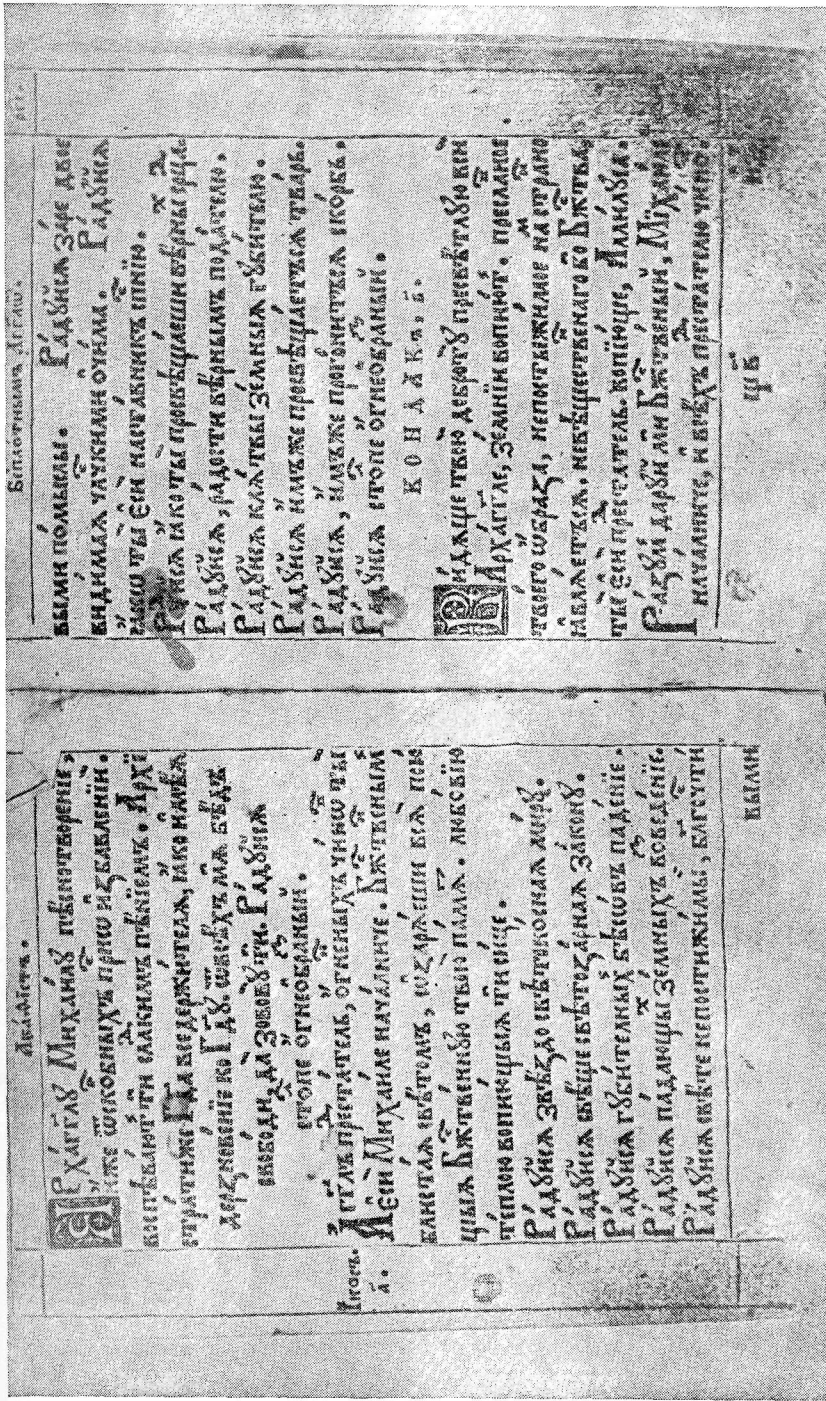 Акаѳістъ.
АРхагглꙋ Михаилꙋ пѣснотвореніе,
иже
воспѣвают ти слакимъ пѣніемъ. Архі
стратиже Гда вседержителѧ, ꙗко имѣѧ
дерзновеніе ко Гдꙋ. ѿ всѣхъ мѧ бѣдъ
свободи, да зовобꙋ ти. Радꙋисѧ
стопе огнеобраный.
Икосъ.
а҃.
Агглъ престатель, огненыхъ чинѡ ты
еси Михаиле началниче. Бжтвенымъ
свѣтомъ, ѡзарѧеши всѧ пою
щыѧ Бжтвенꙋю твою памѧ. любовию
теплою вопиющыѧ ти сице.
Радꙋисѧ звѣздо свѣтоноснаѧ мирꙋ.
Радꙋисѧ свѣще свѣтозарнаѧ законꙋ.
Радꙋисѧ гꙋбителных бѣсовъ падение.
Радꙋисѧ падающы земныхъ возведение.
Радꙋисѧ свѣте непостижимы, благочти
выми
Бесплотнымъ Агглом.
выми помыслы. Радꙋисѧ заре две
видимаѧ члчкими очима. Радꙋисѧ
ꙗкѡ ты еси наставник спнию.
Радꙋисѧ ꙗко ты просвѣщаеши вѣрны срца.
Радꙋисѧ, радости вѣрнымъ подателю.
Радꙋисѧ клѧтвы земныѧ гꙋбителю.
Радꙋисѧ имъже просвѣщаетсѧ тварь.
Радꙋисѧ, имъже прогонитсѧ скорбь.
Радꙋисѧ стопе огнеобраный.
КОНДАКЪ, в҃.
Видѧще твою добротꙋ пресвѣтлꙋю вси
Архаггле, земнїи вопиют. преславное
твоего ѡбраза, непостыжимое на страно
ꙗвлѧетсѧ. невещественаго бо Бжтва,
ты еси престатель. вопиюще, Аллилꙋиа.
Разꙋм дарꙋй ми Бжтвеный, Михаиле
началниче, и всѣхъ престателю чино.